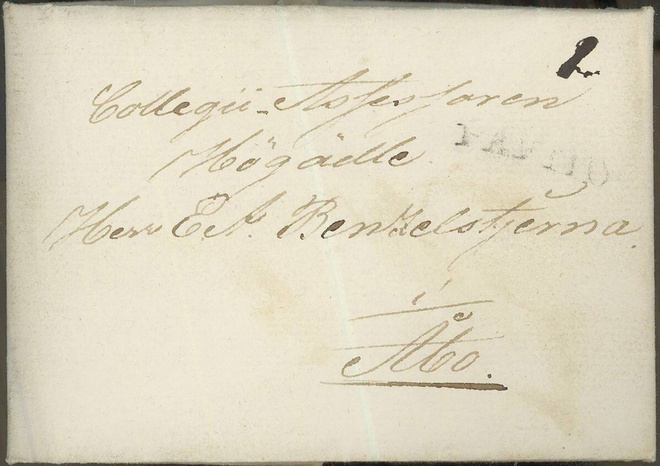 Collegii-Assessoren
Högädle
Herr E. A. Benzelstjerna
i
Åbo.